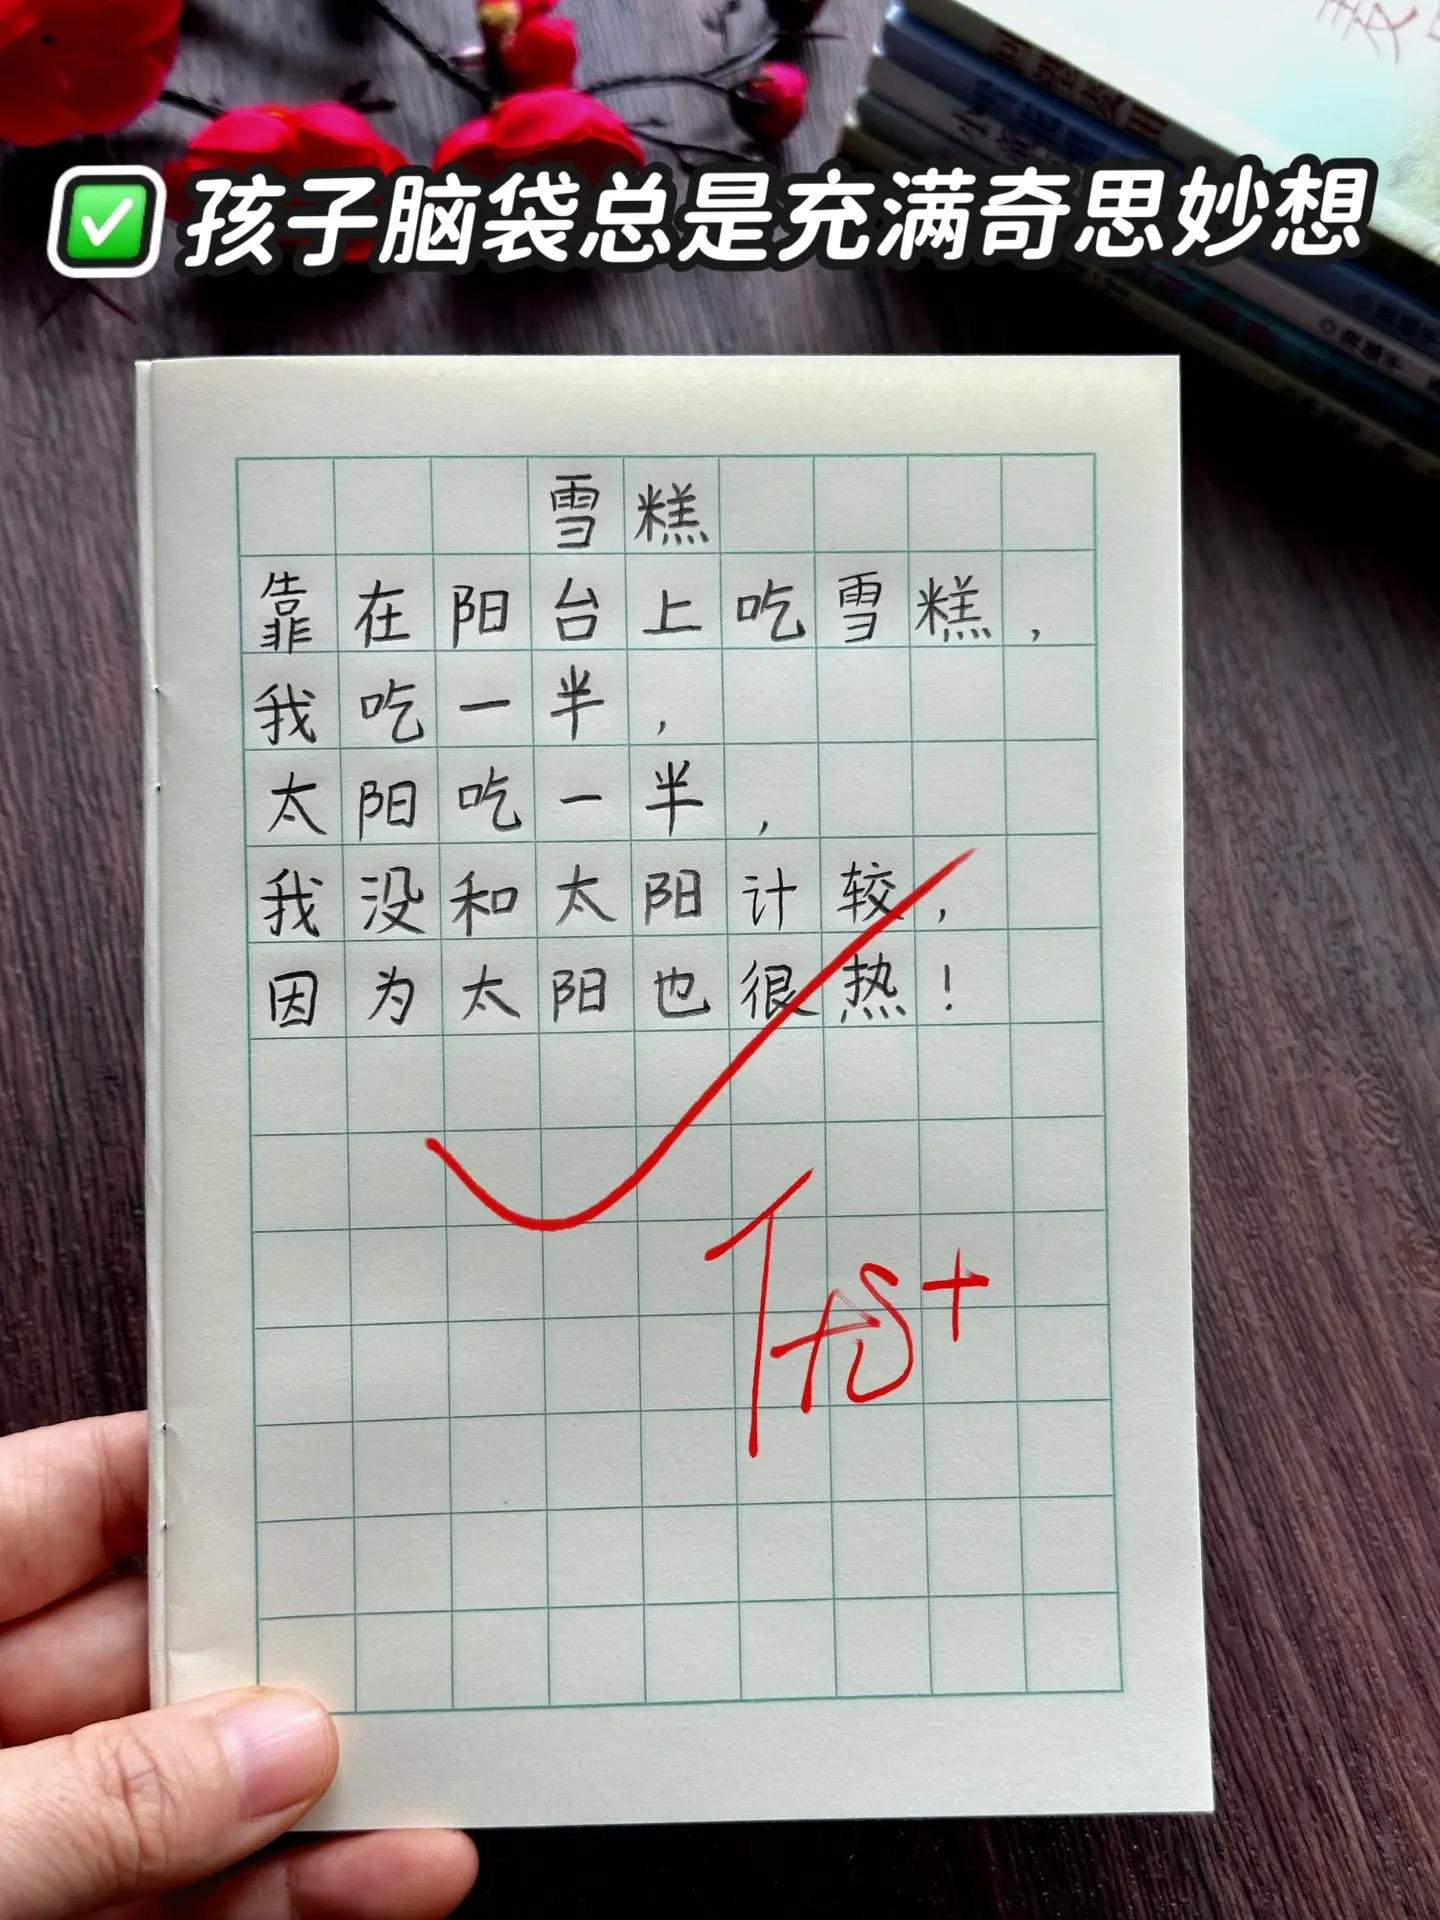 ✅孩子脑袋总是充满奇思妙想
雪糕
靠在阳台上吃雪糕，
我吃一半，
太阳吃一半，
我没和太阳计较，
因为太阳也很热！